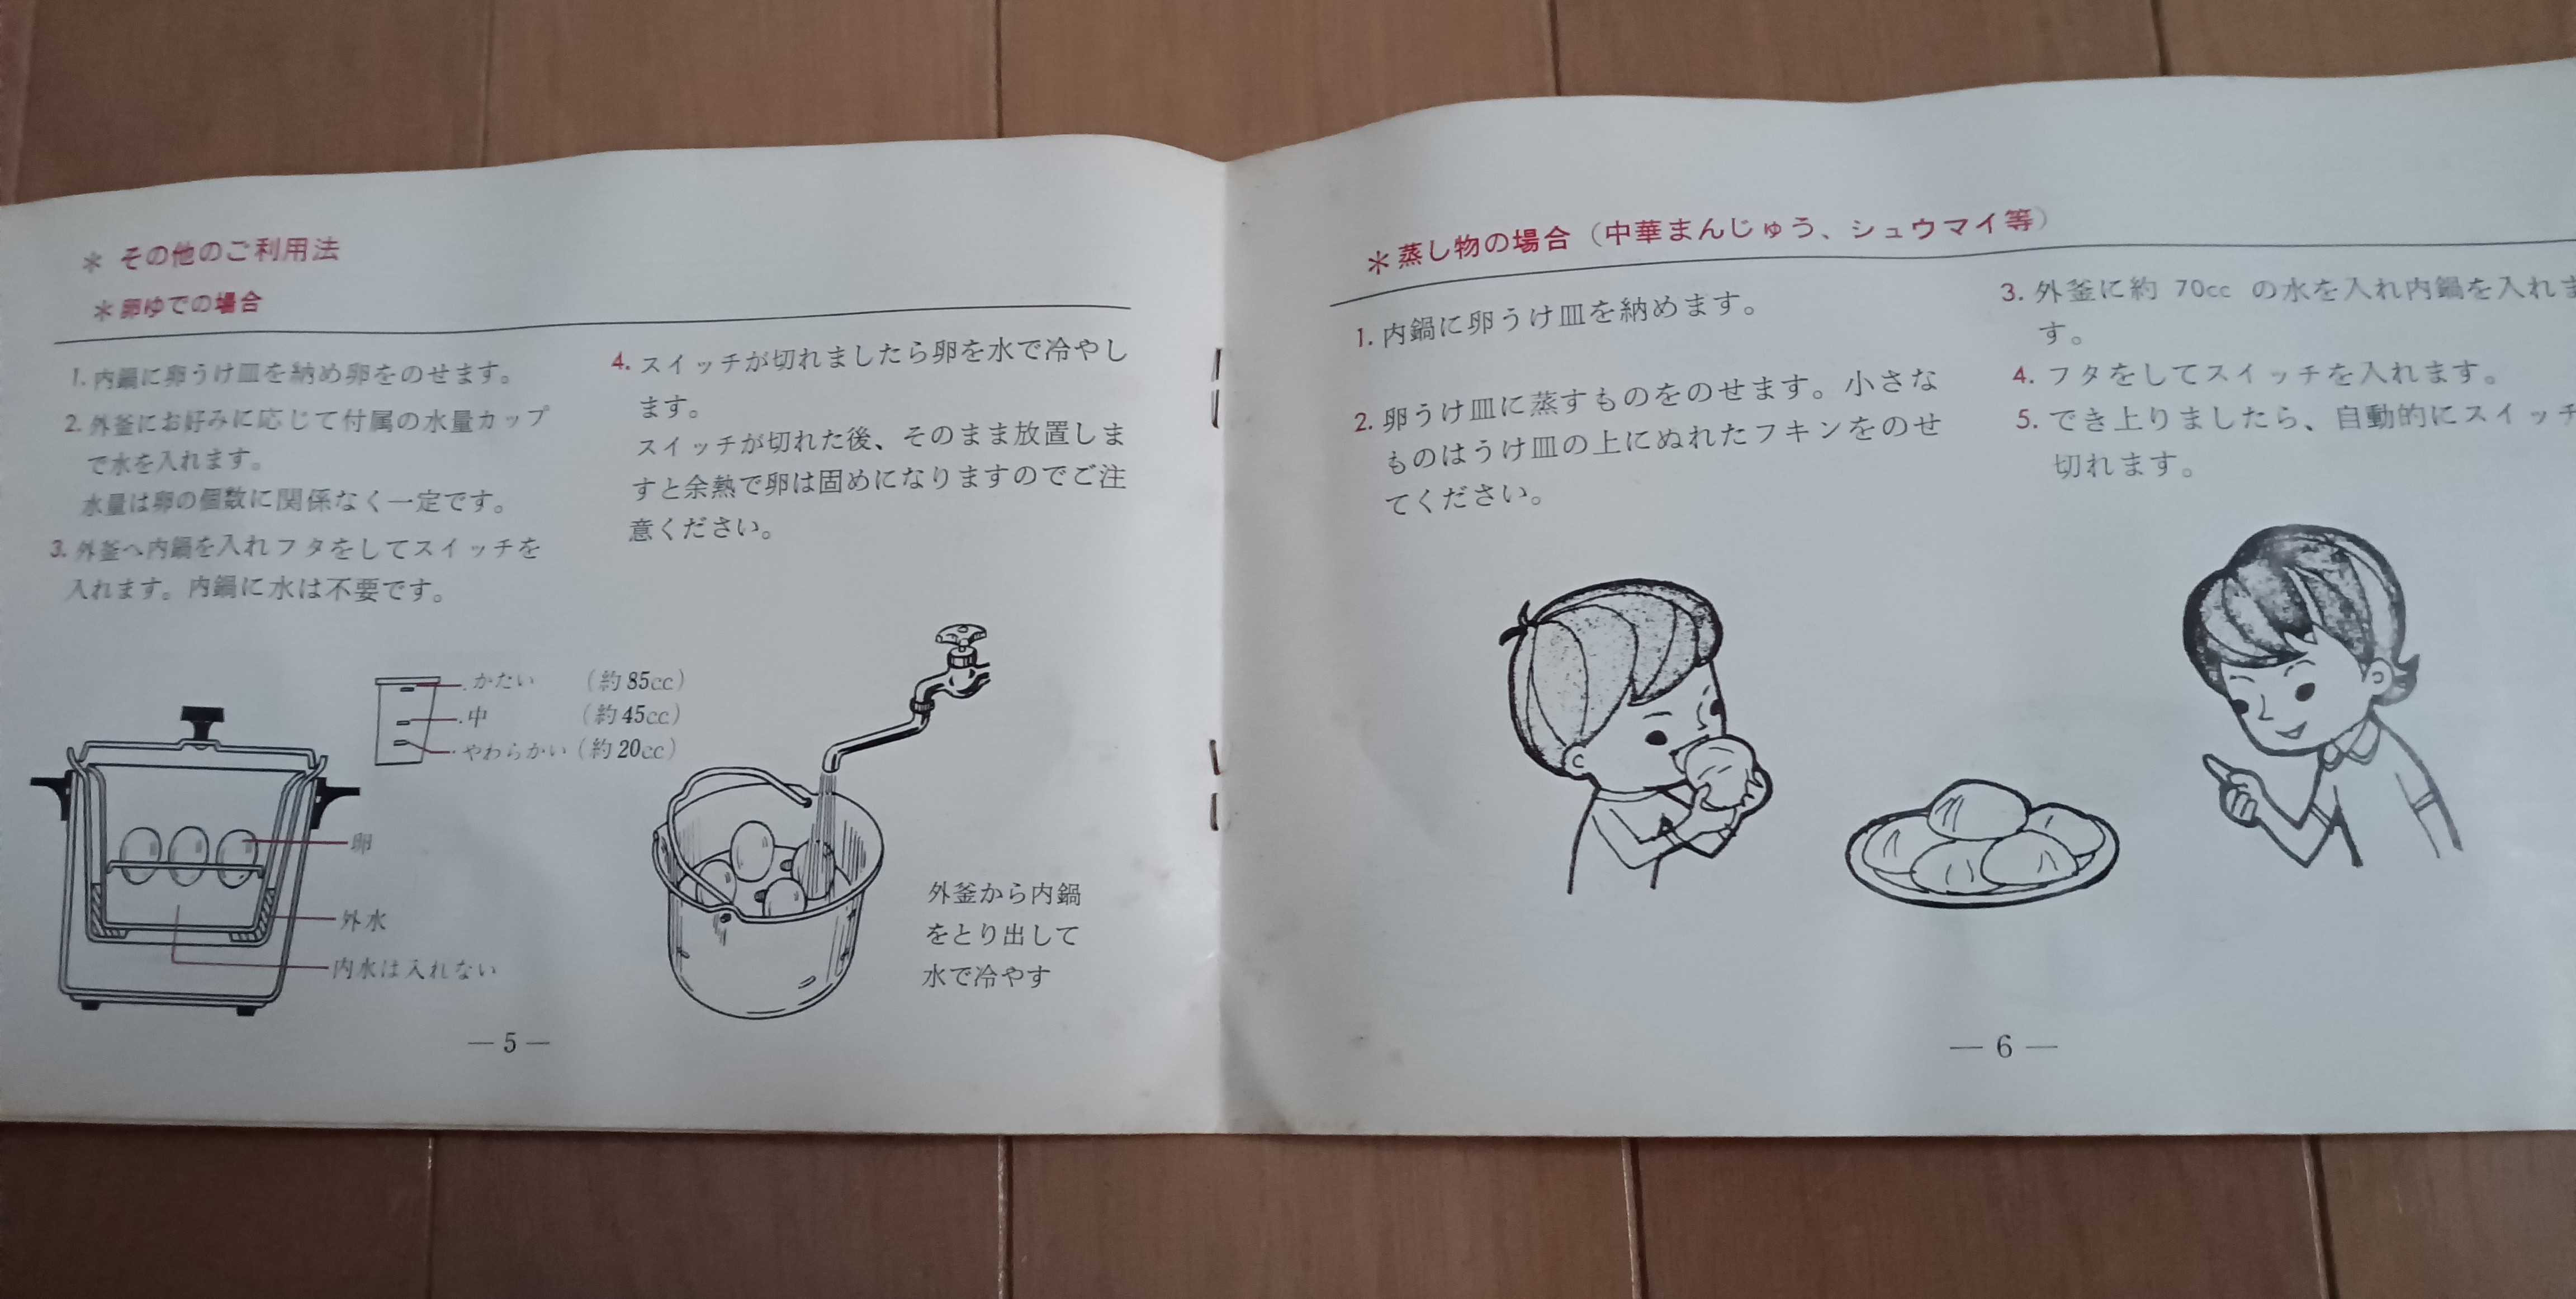 ＊ その他のご利用法
＊ 卵ゆでの場合
1. 内鍋に卵うけ皿を納め卵をのせます。
2. 外釜にお好みに応じて付属の水量カップ
で水を入れます。
水量は卵の個数に関係なく一定です。
3. 外釜へ内鍋を入れフタをしてスイッチを
入れます。内鍋に水は不要です。
4. スイッチが切れましたら卵を水で冷やし
ます。
スイッチが切れた後、そのまま放置しま
すと余熱で卵は固めになりますのでご注
意ください。
かたい （約85cc）
中 （約45cc）
やわらかい（約20cc）
卵
外水
内水は入れない
外釜から内鍋
をとり出して
水で冷やす
— 5 —
＊蒸し物の場合（中華まんじゅう、シュウマイ等）
1. 内鍋に卵うけ皿を納めます。
2. 卵うけ皿に蒸すものをのせます。小さな
ものはうけ皿の上にぬれたフキンをのせ
てください。
3. 外釜に約 70cc の水を入れ内鍋を入れま
す。
4. フタをしてスイッチを入れます。
5. でき上りましたら、自動的にスイッチ
切れます。
— 6 —